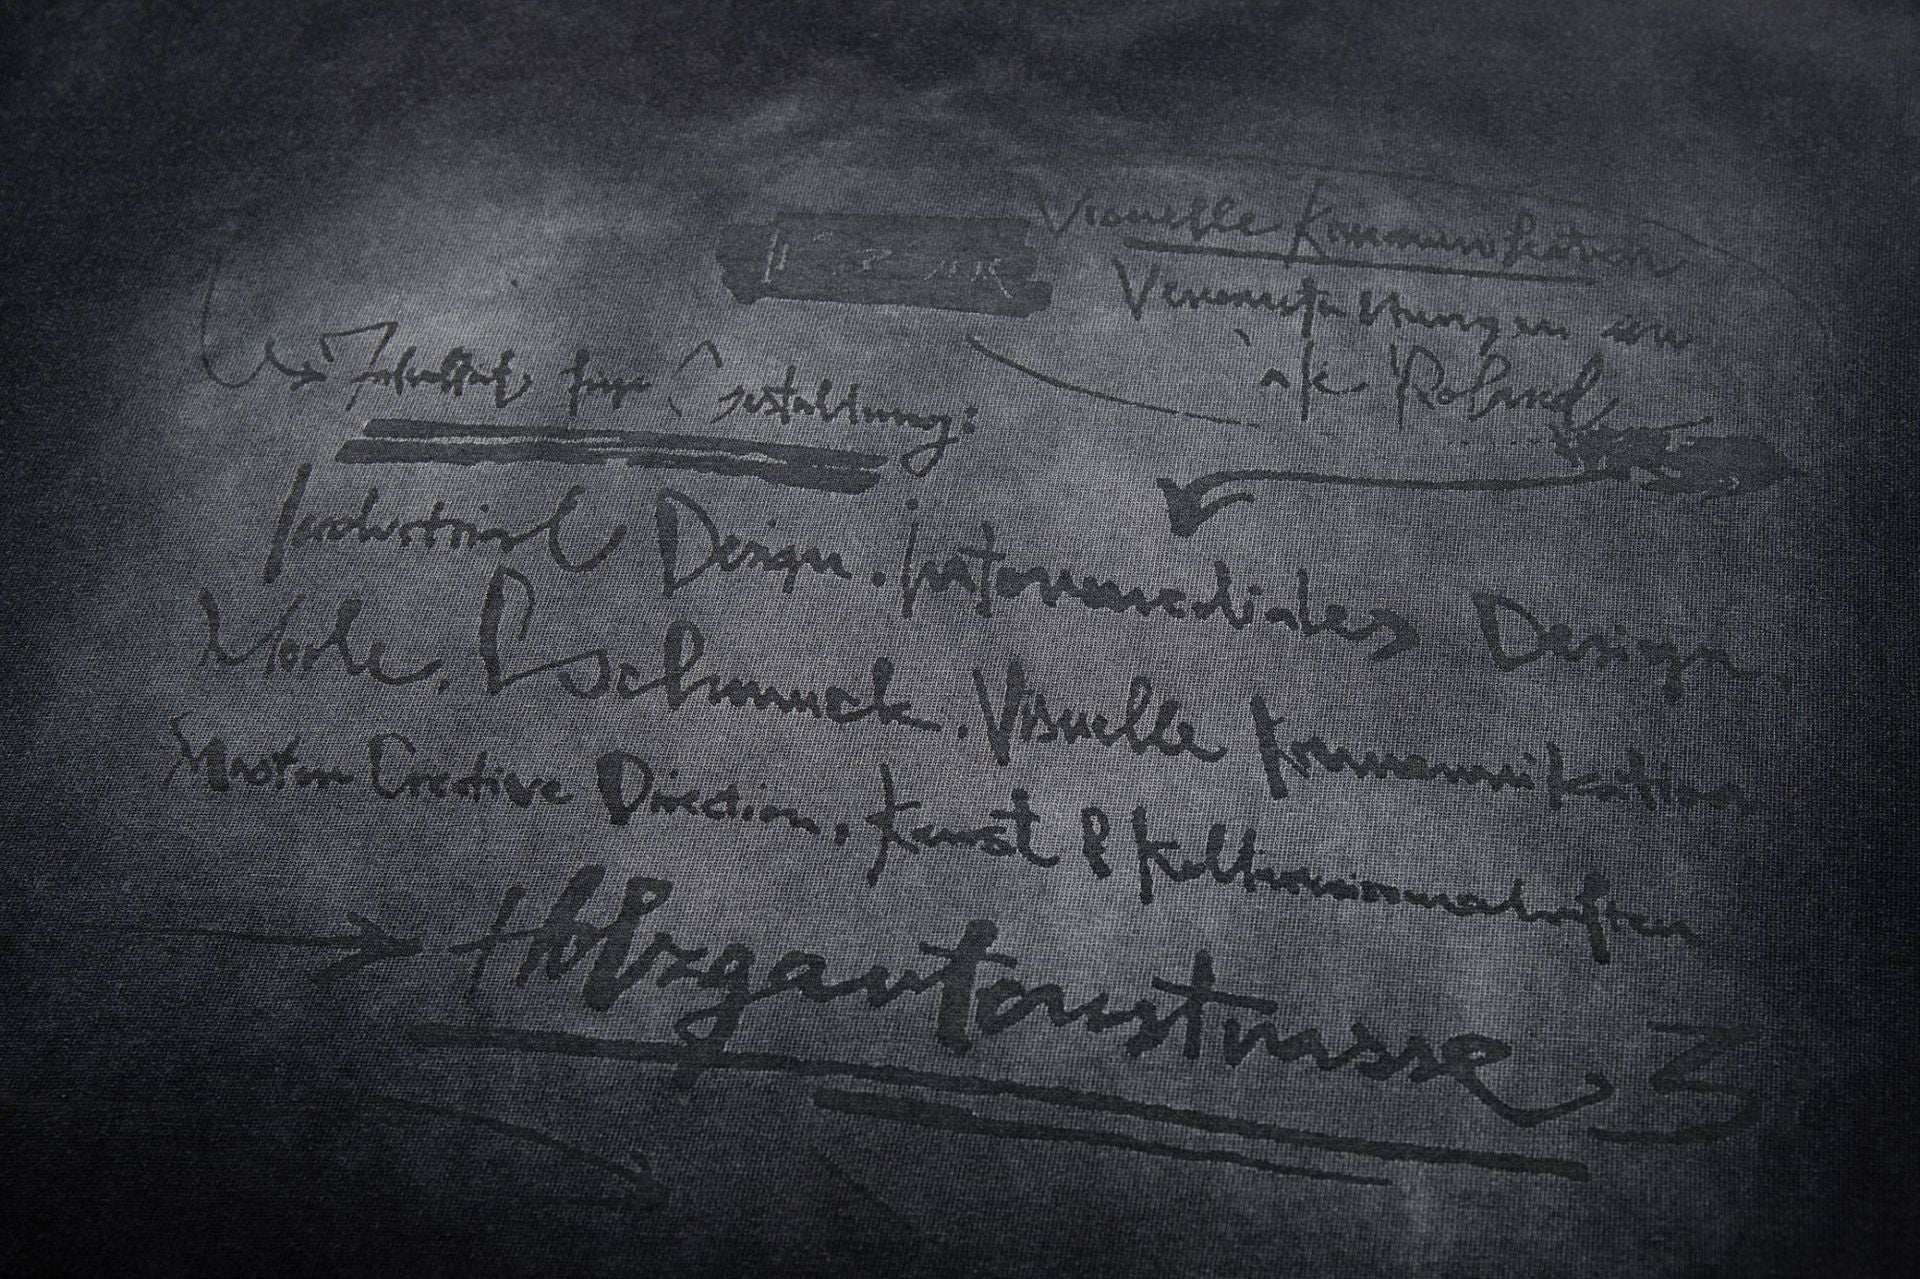 Visuelle Kommunikation
Veranstaltungen an
Roland
Fakultät für Gestaltung:
Industrial Design. Intermediales Design.
Mode. Schmuck. Visuelle Kommunikation
Master Creative Direction. Kunst & Kulturwissenschaften
Holzgartenstrasse 3